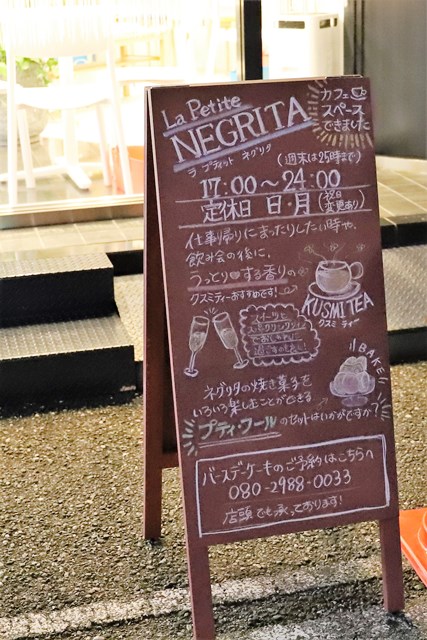 La Petite
NEGRITA
ラ プティット ネグリタ
カフェ
スペース
できました
(週末は25時まで)
17:00〜24:00
定休日 日・月 (祝日変更あり)
仕事帰りにまったりしたい時や、
飲み会の後に、
うっとりする香りの
クスミティーおすすめです!
KUSMI TEA
クスミ ティー
スイーツと
スパークリングワイン
BAKE
ネグリタの焼き菓子を
いろいろ楽しむことができる
プティ・フール のセットはいかがですか?
バースデーケーキのご予約はこちらへ
080-2988-0033
店頭でも承っております!